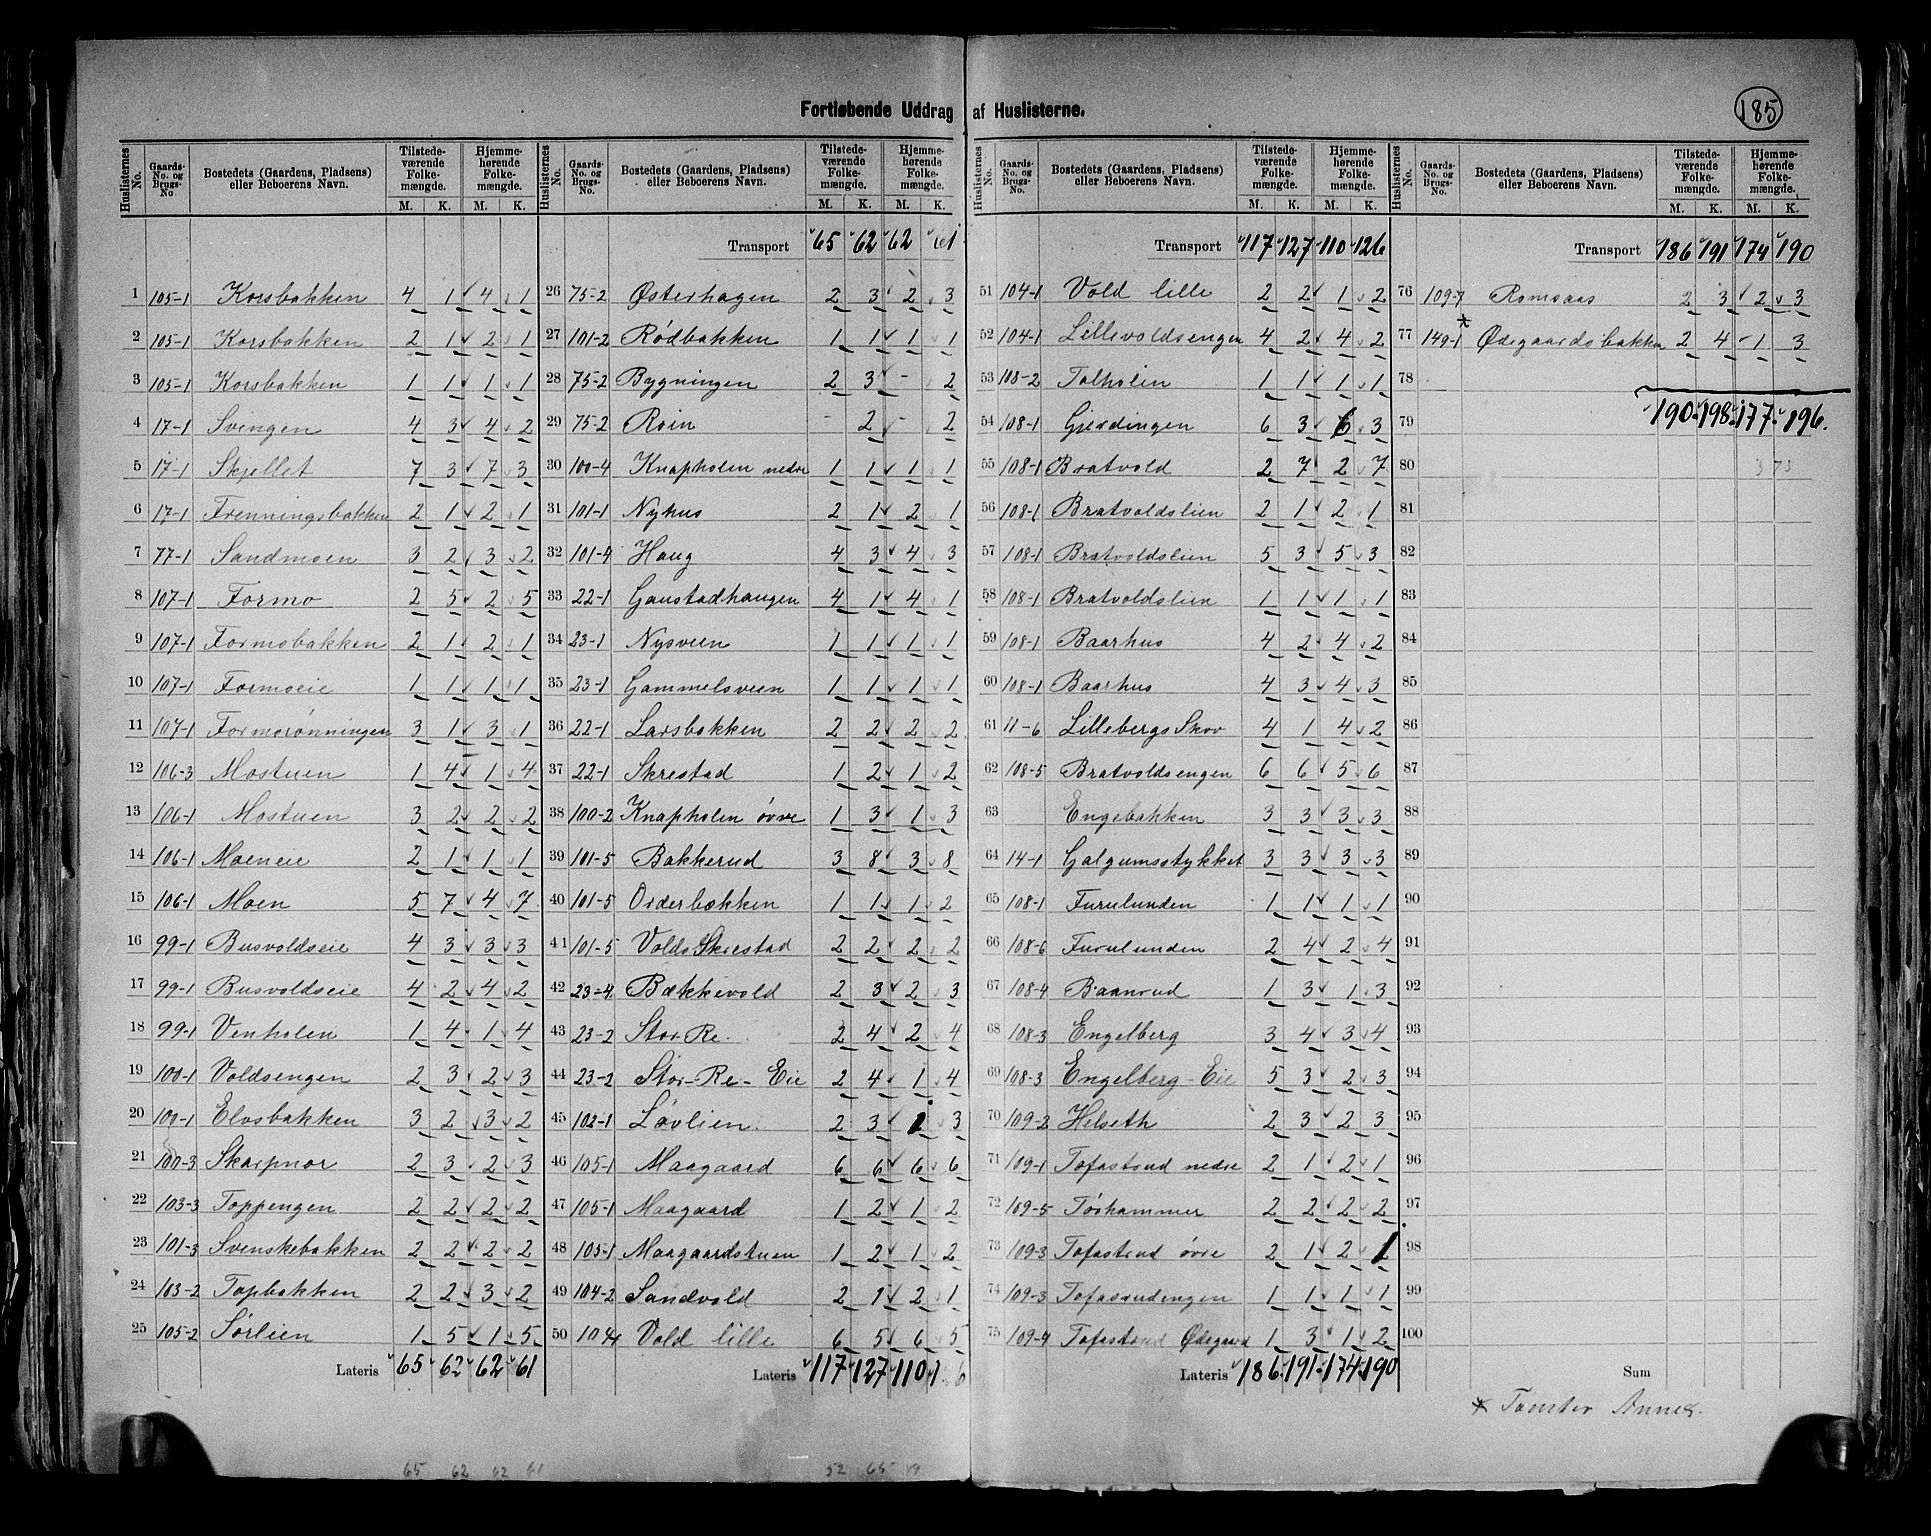 Fortløbende Uddrag af Huslisterne.
185
Huslisternes No. Gaards-No. og Brugs-No Bostedets (Gaardens, Pladsens) eller Beboerens Navn. Tilstedeværende Folkemængde. M. K. Hjemmehørende Folkemængde. M. K.
1 105-1 Korsbakken 4 1 4 1
2 105-1 Korsbakken 2 1 2 1
3 105-1 Korsbakken 1 1 1 1
4 17-1 Svingen 4 3 4 2
5 17-1 Skjellet 7 3 7 3
6 17-1 Frenningsbakken 2 1 2 1
7 77-1 Sandmoen 3 2 3 2
8 107-1 Formo 2 5 2 5
9 107-1 Formobakken 2 1 2 1
10 107-1 Formoeie 1 1 1 1
11 107-1 Formorønningen 3 1 3 1
12 106-3 Mostuen 1 4 1 4
13 106-1 Mostuen 3 2 2 2
14 106-1 Moeneie 2 1 1 1
15 106-1 Moen 5 7 4 7
16 99-1 Busvoldseie 4 3 3 3
17 99-1 Busvoldseie 4 2 4 2
18 99-1 Venholen 1 4 1 4
19 100-1 Voldsengen 2 3 2 3
20 100-1 Elvsbakken 3 2 3 2
21 100-3 Skarpnor 2 3 2 3
22 103-3 Toppengen 2 2 2 2
23 101-3 Svenskebakken 2 2 2 2
24 103-2 Topbakken 2 2 3 2
25 105-2 Sørlien 1 5 1 5
Lateris 65 62 62 61
65 62 62 61
Huslisternes No. Gaards-No. og Brugs-No Bostedets (Gaardens, Pladsens) eller Beboerens Navn. Tilstedeværende Folkemængde. M. K. Hjemmehørende Folkemængde. M. K.
Transport 65 62 62 61
26 75-2 Østerhagen 2 3 2 3
27 101-2 Rødbakken 1 1 1 1
28 75-2 Bygningen 2 3 - 2
29 75-2 Roin - 2 - 2
30 100-4 Knapholen nedre 1 1 1 1
31 101-1 Nyhus 2 1 2 1
32 101-4 Haug 4 3 4 3
33 22-1 Gaustadhaugen 4 1 4 1
34 23-1 Nysveen 1 1 1 1
35 23-1 Gammelsveen 1 1 1 1
36 22-1 Larsbakken 2 2 2 2
37 22-1 Skrestad 1 2 1 2
38 100-2 Knapholen øvre 1 3 1 3
39 101-5 Bakkerud 3 8 3 8
40 101-5 Orderbækken 1 1 1 2
41 101-5 Volds Skrestad 2 2 2 2
42 23-4 Bækkevold 2 3 2 3
43 23-2 Stor Re. 2 4 2 4
44 23-2 Stor-Re-Eie 2 4 1 4
45 102-1 Løvlien 2 3 1 3
46 105-1 Maagaard 6 6 6 6
47 105-1 Maagaard 1 2 1 2
48 105-1 Maagaardstuen 1 2 1 2
49 104-2 Sandvold 2 1 2 1
50 104 Vold lille 6 5 6 5
Lateris 117 127 110 1 6
52 65
Huslisternes No. Gaards-No. og Brugs-No Bostedets (Gaardens, Pladsens) eller Beboerens Navn. Tilstedeværende Folkemængde. M. K. Hjemmehørende Folkemængde. M. K.
Transport 117 127 110 126
51 104-1 Vold lille 2 2 1 2
52 104-1 Lillevoldsengen 4 2 4 2
53 108-2 Tolholen 1 1 1 1
54 108-1 Gjerdingen 6 3 6 3
55 108-1 Bratvold 2 7 2 7
56 108-1 Bratvoldslien 2 1 2 1
57 108-1 Bratvoldslien 5 3 5 3
58 108-1 Bratvoldslien 1 1 1 1
59 108-1 Baarhus 4 2 4 2
60 108-1 Baarhus 4 3 4 3
61 11-6 Lillebergs Skov 4 1 4 2
62 108-5 Bratvoldsengen 6 6 5 6
63 Engebakken 3 3 3 3
64 14-1 Galgumsstykket 3 3 3 3
65 108-1 Furulunden 1 1 1 1
66 108-6 Furulunden 2 4 2 4
67 108-4 Baanrud 1 3 1 3
68 108-3 Engelberg 3 4 3 4
69 108-3 Engelberg-Eie 5 3 2 3
70 109-2 Helseth 2 3 2 3
71 109-1 Tofastrud nedre 2 1 2 1
72 109-5 Torhammer 2 2 2 2
73 109-3 Tofastrud øvre 2 1 2 1
74 109-3 Tofasrudengen 1 1 1 1
75 109-4 Tofastrud Ødegaard 1 3 1 2
Lateris 186 191 174 190
Huslisternes No. Gaards-No. og Brugs-No Bostedets (Gaardens, Pladsens) eller Beboerens Navn. Tilstedeværende Folkemængde. M. K. Hjemmehørende Folkemængde. M. K.
Transport 186 191 174 190
76 109-7 Romsaas 2 3 2 3
77 149-1 * Ødegaardsbakken 2 4 1 3
78
79 190 198 177 196.
80 373
81
82
83
84
85
86
87
88
89
90
91
92
93
94
95
96
97
98
99
100
Sum
* Tomter Annex.